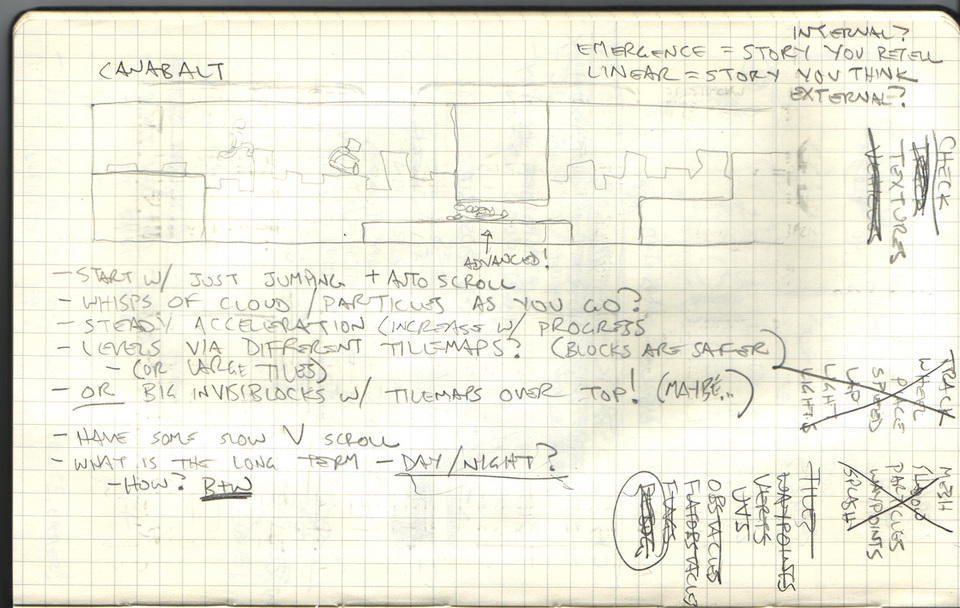 CANABALT
INTERNAL?
EMERGENCE = STORY YOU RETELL
LINEAR = STORY YOU THINK
EXTERNAL?
ADVANCED!
- START W/ JUST JUMPING + AUTO SCROLL
- WHISPS OF CLOUD / PARTICLES AS YOU GO?
- STEADY ACCELERATION (INCREASE W/ PROGRESS
- LEVELS VIA DIFFERENT TILEMAPS? (BLOCKS ARE SAFER)
- (OR LARGE TILES)
- OR BIG INVISIBLOCKS W/ TILEMAPS OVER TOP! (MAYBE...)
- HAVE SOME SLOW V SCROLL
- WHAT IS THE LONG TERM - DAY/NIGHT?
- HOW? B+W
CHECK
TEXTURES
TRACK
WHEEL
PLACE
SPEED
LAP
LIGHT
LIGHTS
MESH
PARTICLES
WAYPOINTS
SPLASH
TILES
WAYPOINTS
VERTS
UVS
OBSTACLES
FLATOBSTACLES